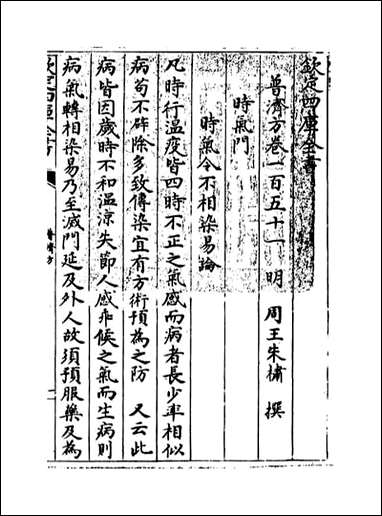 欽定四庫全書
普濟方卷一百五十一　明　周王朱橚　撰
時氣門
時氣令不相染易論
凡時行温疫皆四時不正之氣感而病者長少率相似
病苟不辟除多致傳染宜有方術預為之防　又云此
病皆因歲時不和温涼失節人感乖候之氣而生病則
病氣轉相染易乃至滅門延及外人故須預服藥及為
普濟方